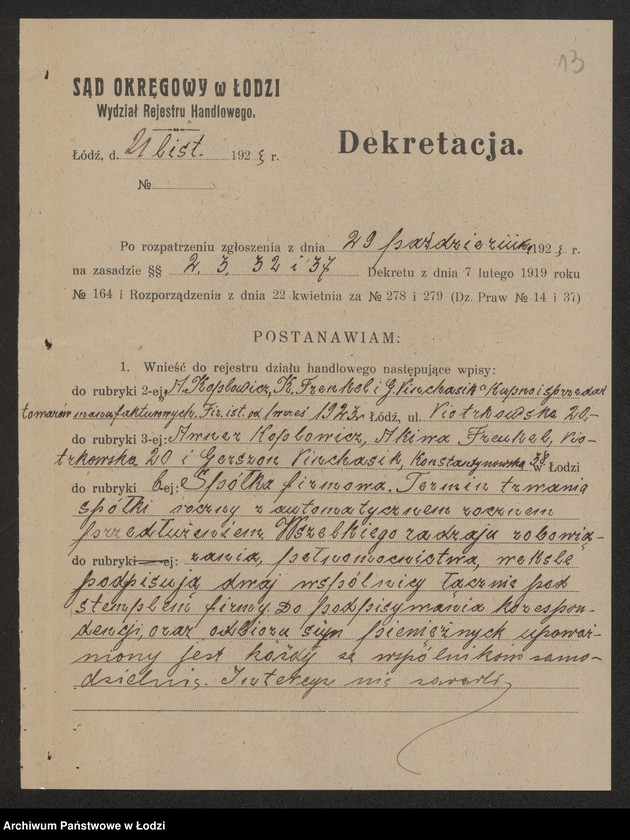 13
SĄD OKRĘGOWY w ŁODZI
Wydział Rejestru Handlowego.
Łódź, d. 21 list. 1923 r.
Dekretacja.
№
Po rozpatrzeniu zgłoszenia z dnia 29 października 1923 r.
na zasadzie §§ 2, 3, 32 i 37 Dekretu z dnia 7 lutego 1919 roku
№ 164 i Rozporządzenia z dnia 22 kwietnia za № 278 i 279 (Dz. Praw № 14 i 37)
POSTANAWIAM:
1. Wnieść do rejestru działu handlowego następujące wpisy:
do rubryki 2-ej: „A. Kopłowicz, K. Frenkel i G. Winchasik" Kupno i sprzedaż
towarów manufakturnych. Fir. ist. od 1 wrześ 1923. Łódź, ul. Piotrkowska 20.-
do rubryki 3-ej: Kopłowicz, Akiwa Frenkel, Pio-
trkowska 20 i Gerszon Konstantynowska 38 w Łodzi
do rubryki 6-ej: Spółka firmowa. Termin trwania
spółki roczny z automatycznem rocznem
przedłużeniem. Wszelkiego rodzaju zobowią-
do rubryki -ej: zania, pełnomocnictwa, weksle
podpisują dwaj wspólnicy łącznie pod
stemplem firmy. Do podpisywania korespon-
dencji, oraz odbioru sum pieniężnych upoważ-
niony jest każdy ze wspólników samo-
dzielnie. Intercyz nie zawarli
Archiwum Państwowe w Łodzi